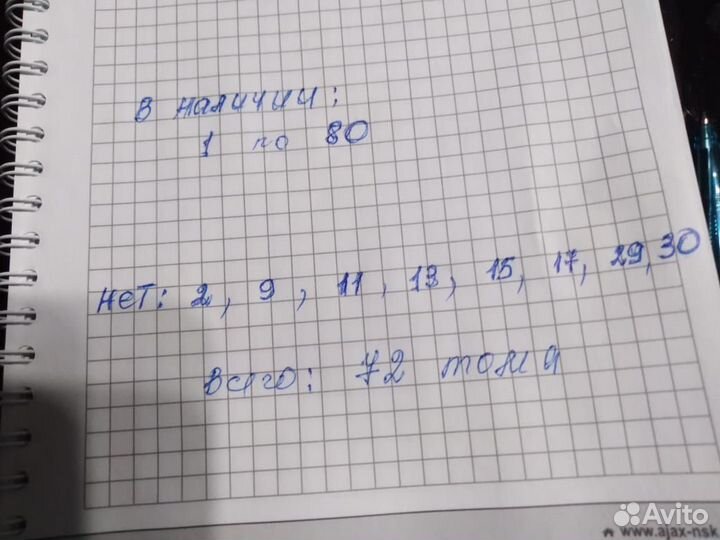 в наличии:
1 по 80
нет: 2, 9, 11, 13, 15, 17, 29, 30
всего: 72 тома
Avito
www.ajax-nsk